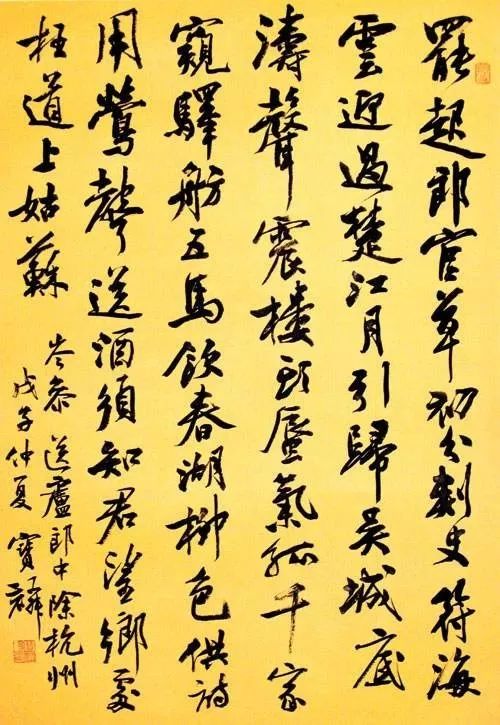 罷起郎官草初分刺史符海
雲迎過楚江月引歸吳城底
濤聲震樓蜃氣孤千家
窺驛舫五馬飲春湖柳色供詩
用鶯聲送酒須知君望鄉處
枉道上姑蘇
岑參 送盧郎中除杭州
戊子仲夏 寶麟